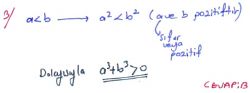 3/ a<b → a²<b² (a ve b pozitiftir)
sıfır
veya
pozitif
Dolayısıyla a³+b³>0
CEVAP:B